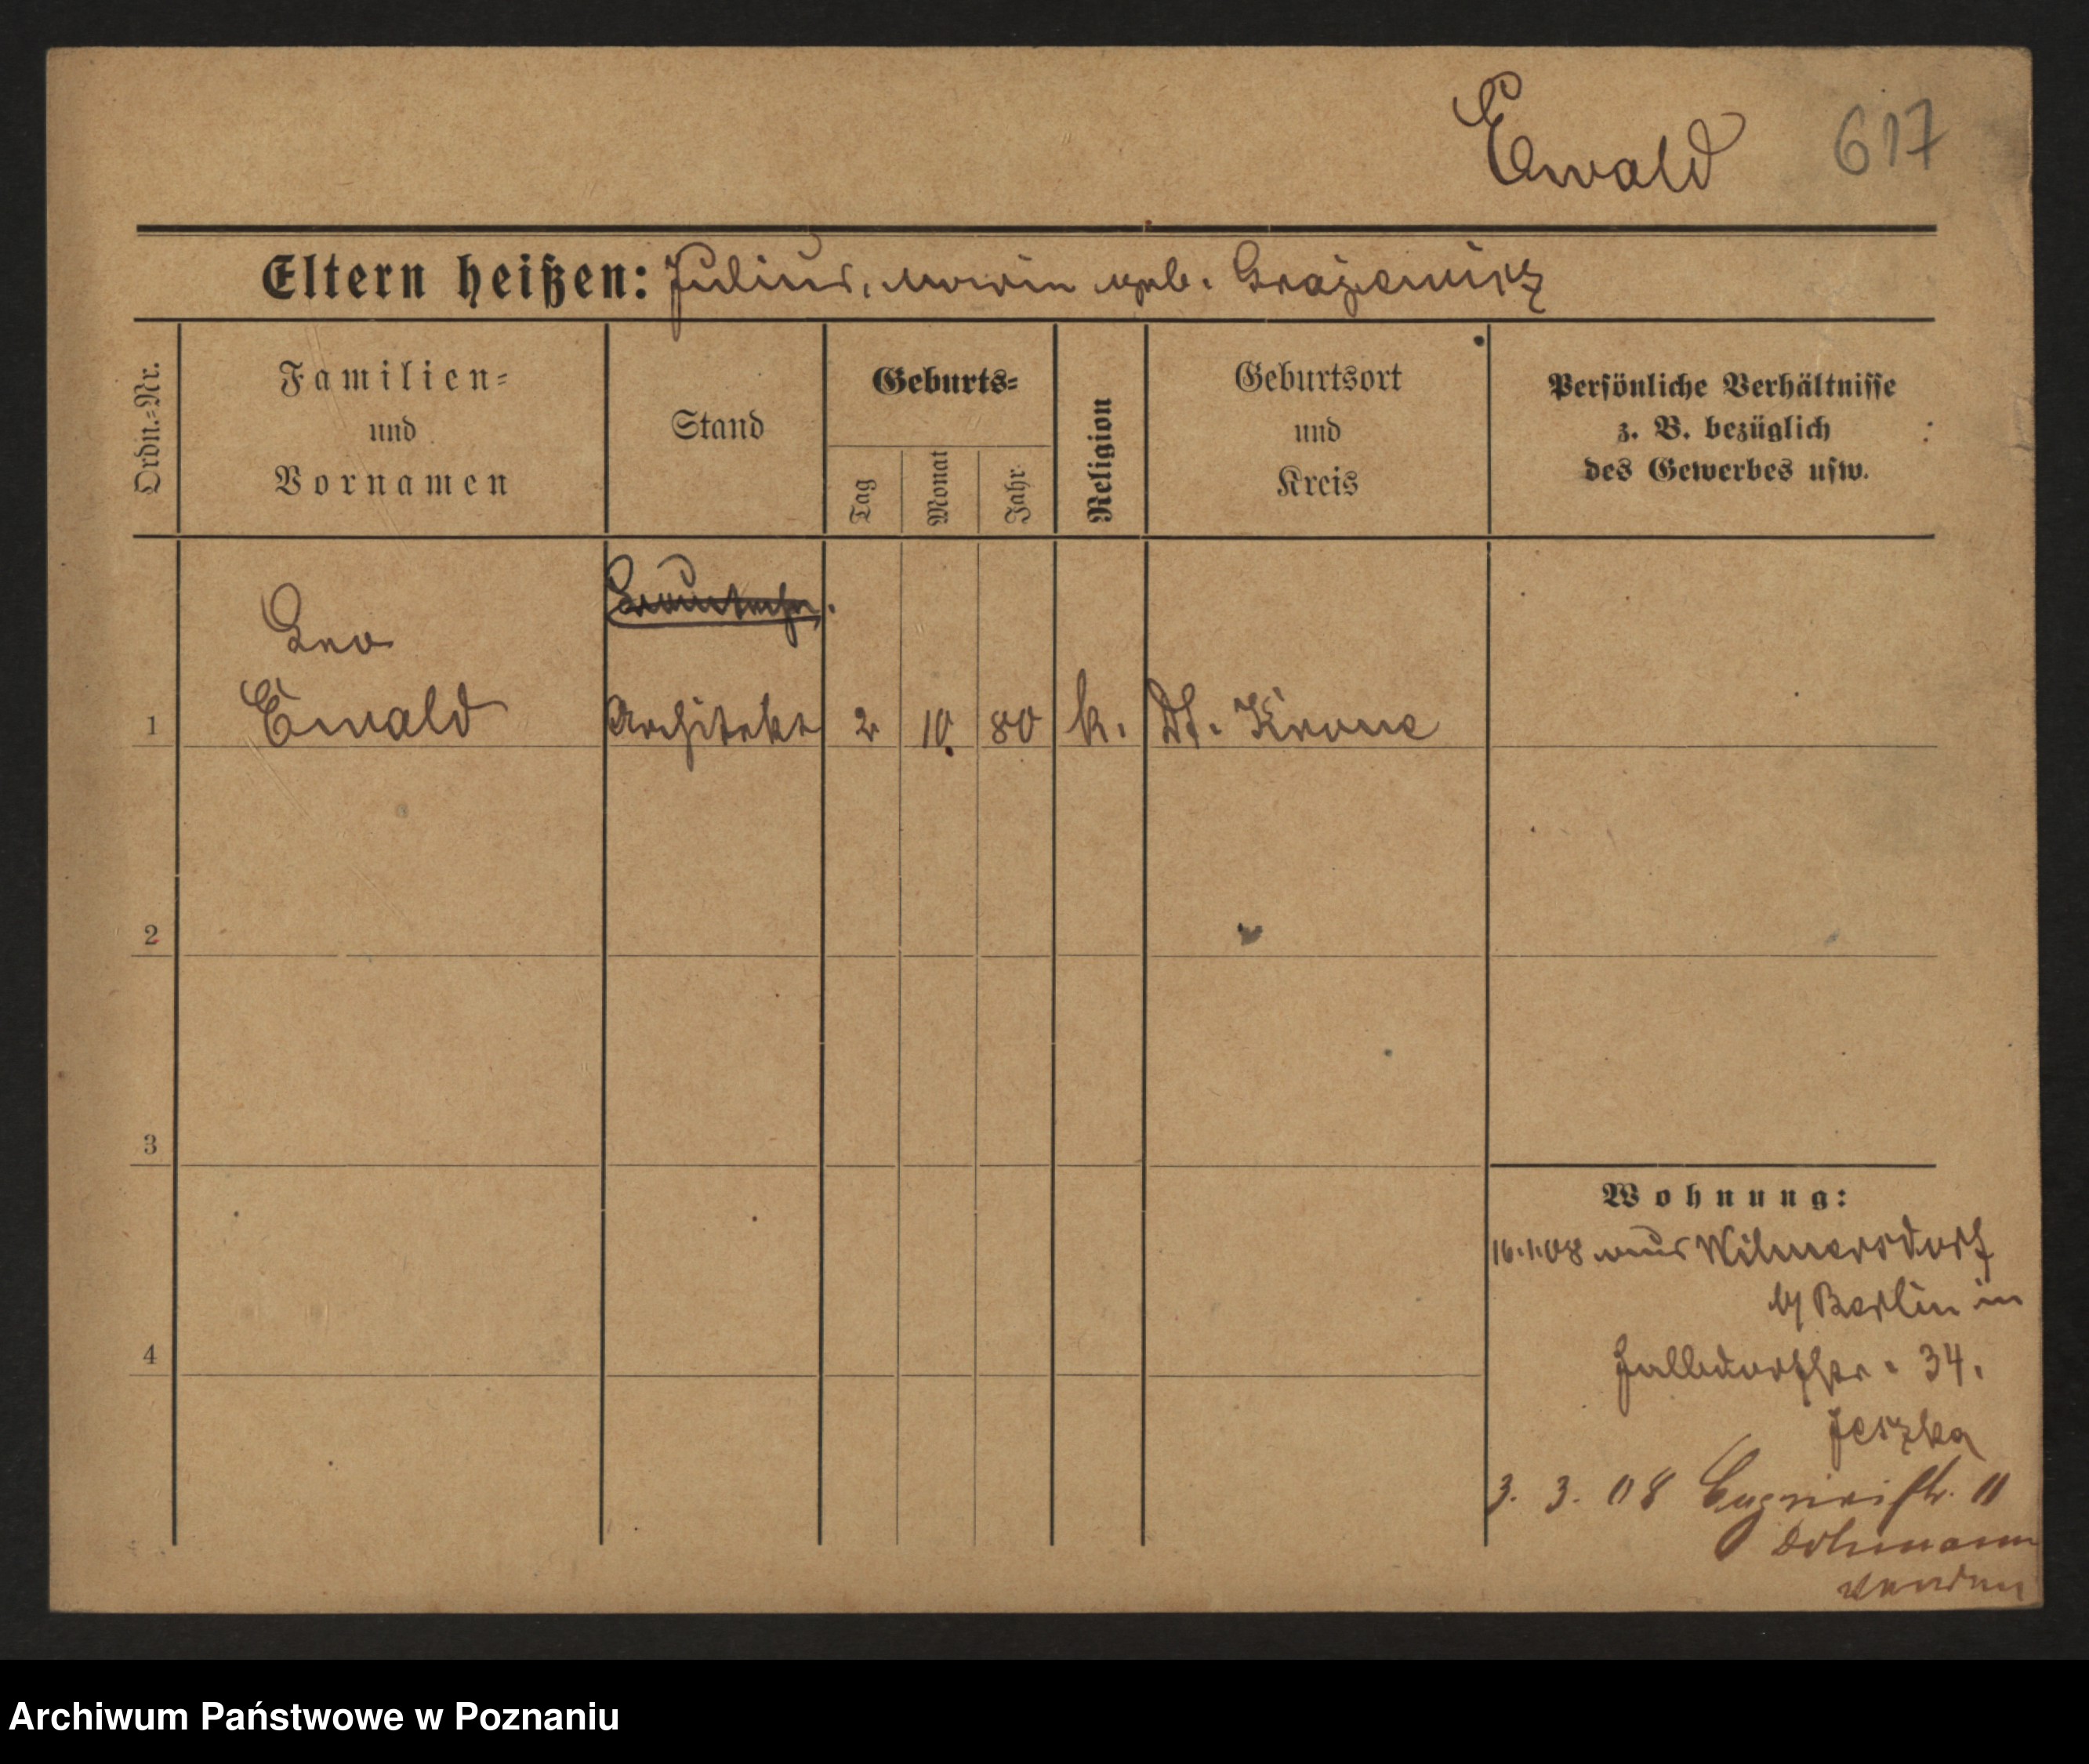 Ewald 617
Eltern heißen: Julius, Maria geb. Grazewicz
Ordn.=Nr.
Familien=
und
Vornamen
Stand
Geburts=
Tag
Monat
Jahr
Religion
Geburtsort
und
Kreis
Persönliche Verhältnisse
z. B. bezüglich
des Gewerbes usw.
Leo
1 Ewald Architekt 2 10. 80 k. Dt. Krone
2
3
4
Wohnung:
16.1.08 aus Wilmersdorf
b/ Berlin in
34.
Jeszka
3. 3. 08 11
Dohmann